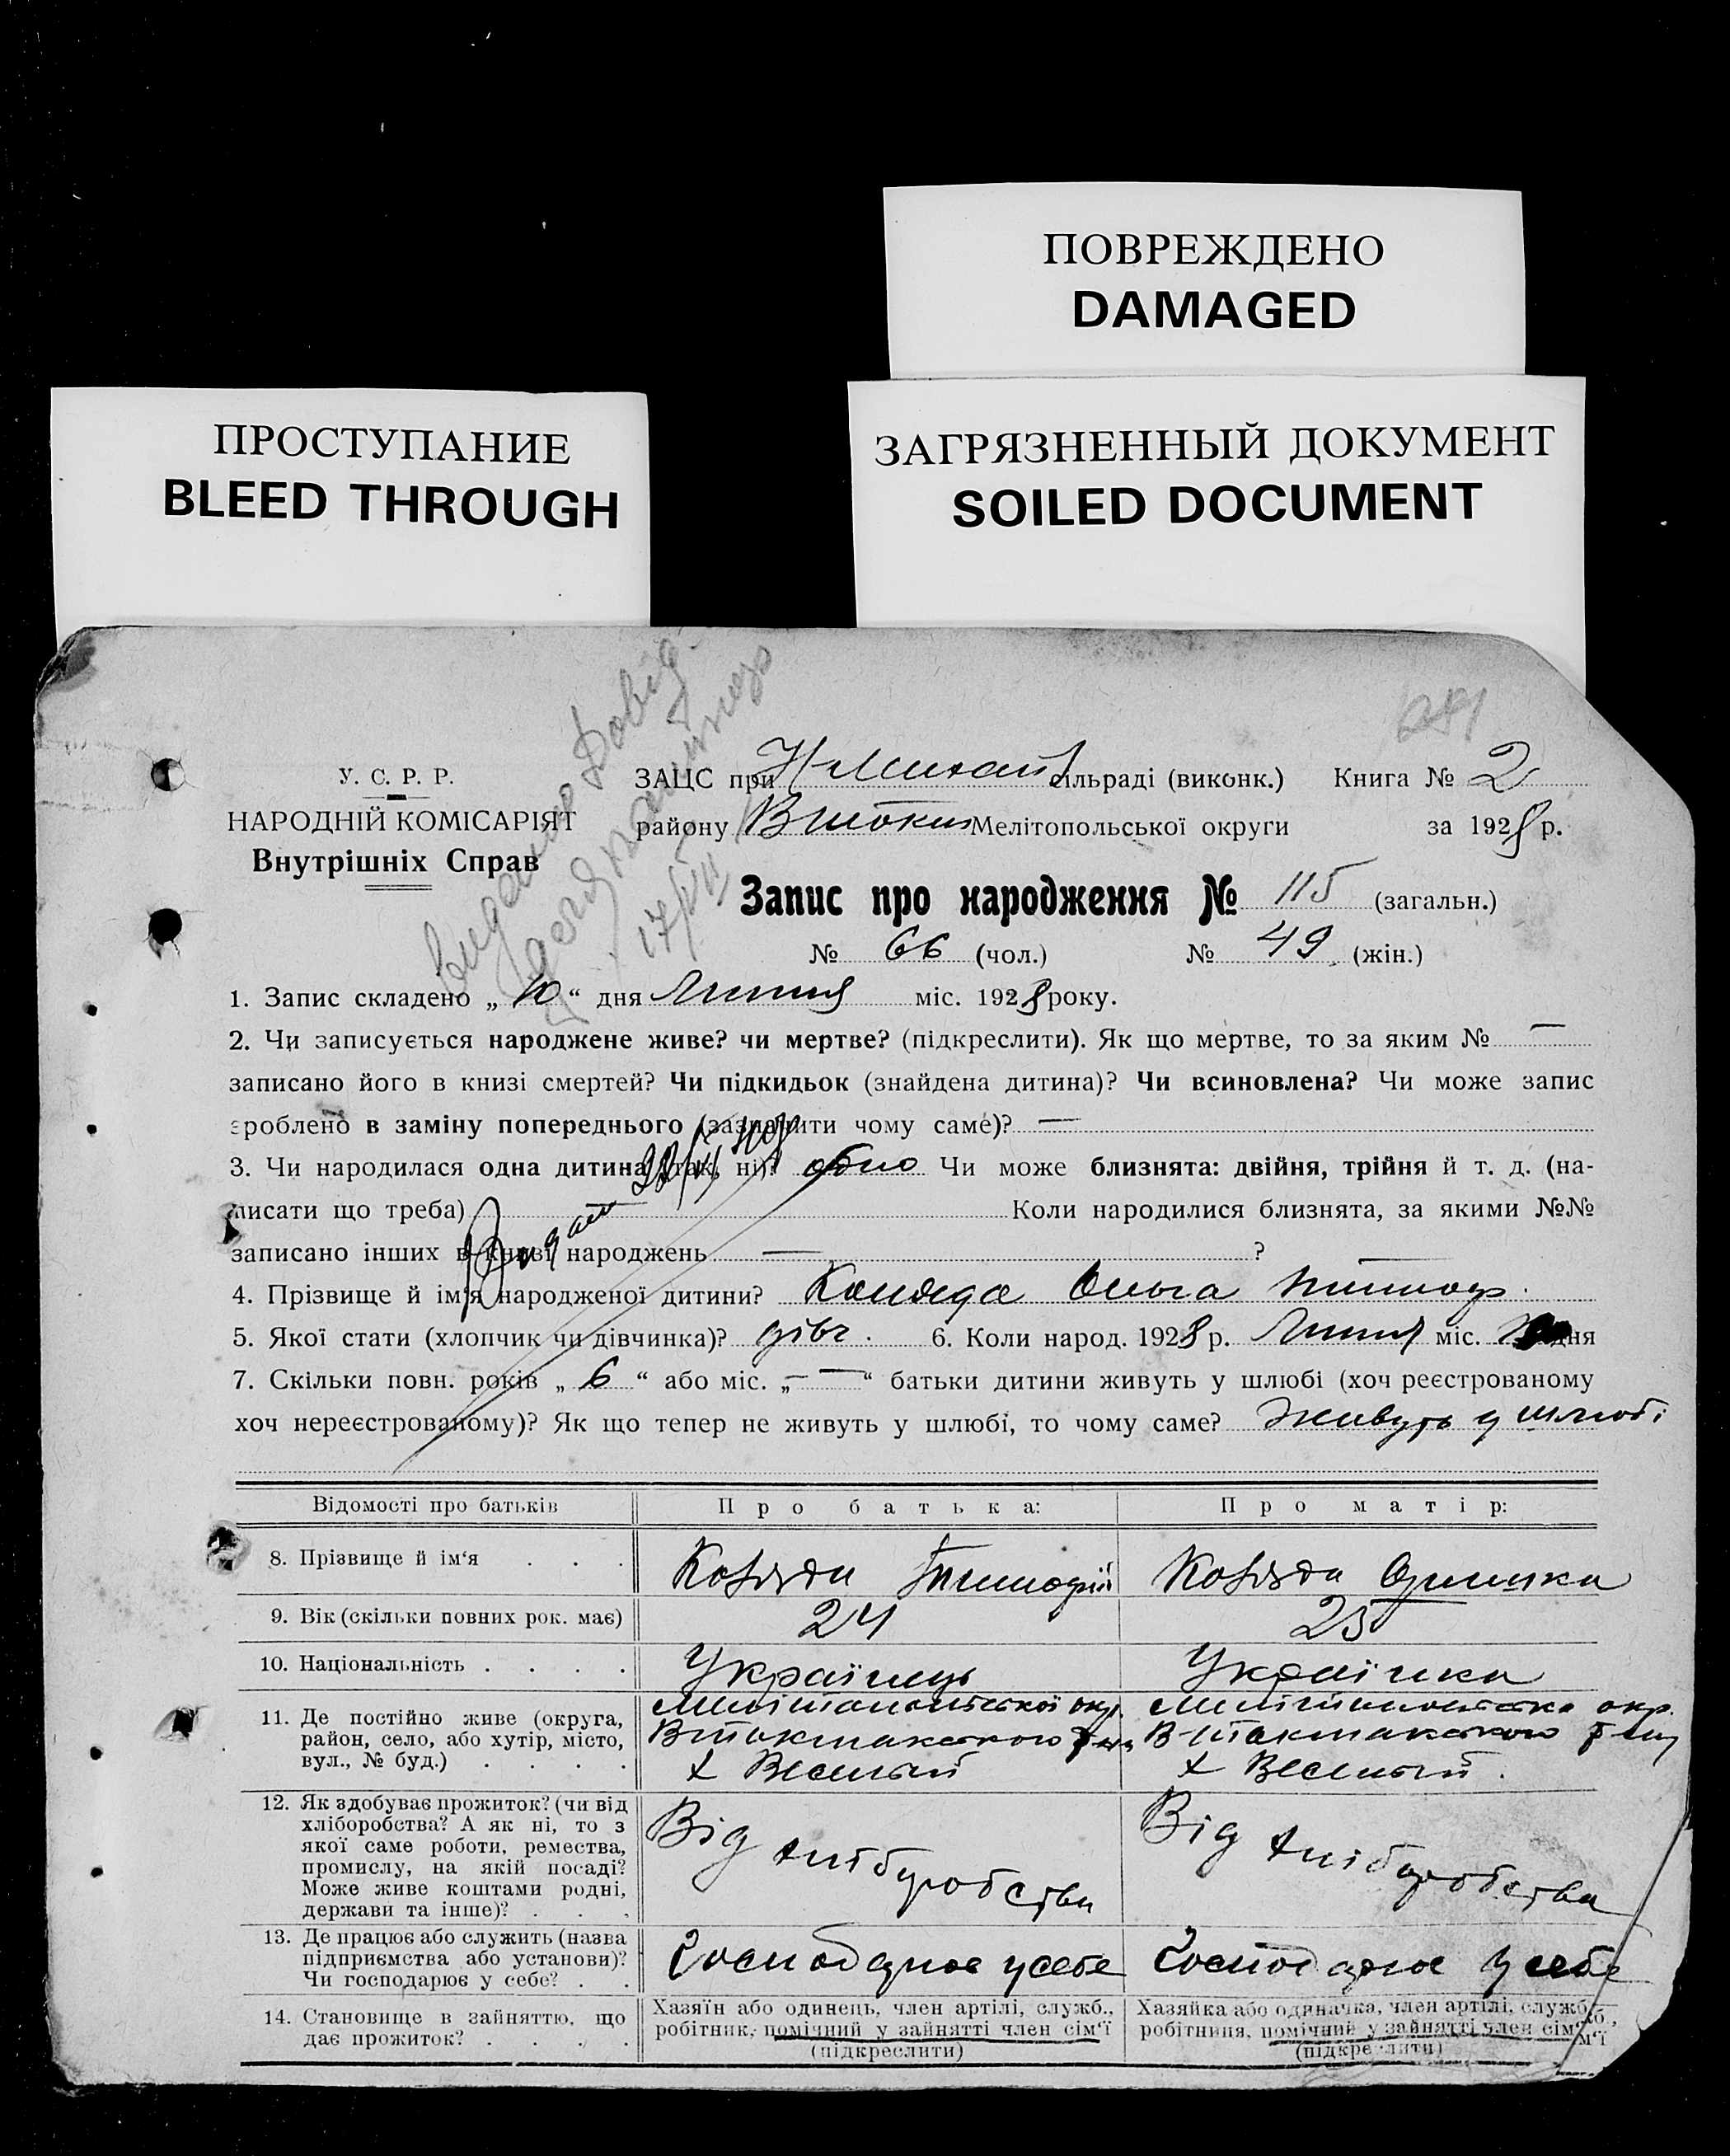 ПОВРЕЖДЕНО
DAMAGED
ПРОСТУПАНИЕ
BLEED THROUGH
ЗАГРЯЗНЕННЫЙ ДОКУМЕНТ
SOILED DOCUMENT
У. С. Р. Р.
НАРОДНІЙ КОМІСАРІЯТ
Внутрішніх Справ
17/VII
ЗАЦС при Н Михай сільраді (виконк.) Книга № 2
району Втокм Мелітопольської округи за 1928 р.
Запис про народження № 115 (загальн.)
№ 66 (чол.) № 49 (жін.)
1. Запис складено „10“ дня Липня міс. 1928 року.
2. Чи записується народжене живе? чи мертве? (підкреслити). Як що мертве, то за яким № —
записано його в книзі смертей? Чи підкидьок (знайдена дитина)? Чи всиновлена? Чи може запис
зроблено в заміну попереднього (зазначити чому саме)? —
3. Чи народилася одна дитина (так, ні)? одно Чи може близнята: двійня, трійня й т. д. (на-
писати що треба) Коли народилися близнята, за якими №№
записано інших в книзі народжень — ?
4. Прізвище й ім'я народженої дитини? Коляда Ольга Тимоф.
5. Якої стати (хлопчик чи дівчинка)? дівч. 6. Коли народ. 1928 р. Липня міс. дня
7. Скільки повн. років „6“ або міс. „—“ батьки дитини живуть у шлюбі (хоч реєстрованому
хоч нереєстрованому)? Як що тепер не живуть у шлюбі, то чому саме? Живуть у шлюбі
Відомості про батьків Про батька: Про матір:
8. Прізвище й ім'я . . . Коляда Тимофій Коляда Оришка
9. Вік (скільки повних рок. має) 24 25
10. Національність . . . . Українець Українка
11. Де постійно живе (округа, район, село, або хутір, місто, вул., № буд.) . . . .
Мелітопольської окр. Втокмакського р-ну
х Веселый
Мелітопольсько окр.
Втокмакского р-ну
х Веселый.
12. Як здобуває прожиток? (чи від
хліборобства? А як ні, то з
якої саме роботи, ремества,
промислу, на якій посаді?
Може живе коштами родні,
держави та інше)? . . .
Від хліборобства
Від хліборобства
13. Де працює або служить (назва
підприємства або установи)?
Чи господарює у себе? . .
Господарює у себе
Господарює у себе
14. Становище в зайняттю, що
дає прожиток? . . . .
Хазяїн або одинець, член артілі, служб.,
робітник, помічний у зайнятті член сім'ї
(підкреслити)
Хазяйка або одиначка, член артілі, служб.,
робітниця, помічний у зайнятті член сім'ї
(підкреслити)